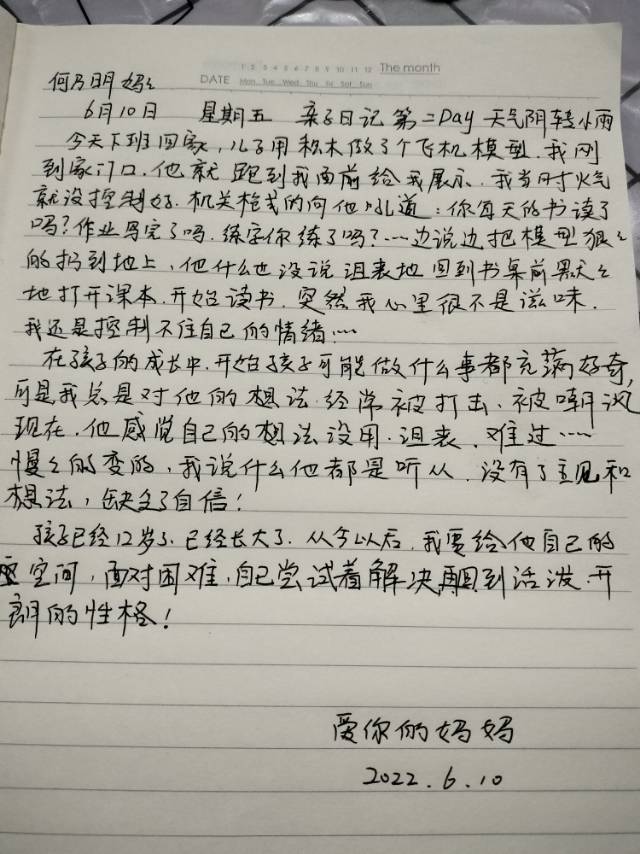 1 2 3 4 5 6 7 8 9 10 11 12 The month
DATE Mon Tue Wed Thu Fri Sat Sun
何乃明妈々
6月10日 星期五 亲子日记第二Day 天气阴转小雨
今天下班回家,儿子用积木做了个飞机模型.我刚
到家门口.他就跑到我面前给我展示.我当时火气
就没控制好.机关枪式的向他吼道:你每天的书读了
吗?作业写完了吗.练字你练了吗?……边说边把模型狠々
的扔到地上,他什么也没说沮丧地回到书桌前默々
地打开课本.开始读书.突然我心里很不是滋味.
我还是控制不住自己的情绪……
在孩子的成长中.开始孩子可能做什么事都充满好奇,
可是我总是对他的想法经常被打击、被嘲讽
现在.他感觉自己的想法没用.沮丧.难过……
慢々的变的,我说什么他都是听从.没有了主见和
想法,缺乏了自信!
孩子已经12岁了.已经长大了.从今以后.我要给他自己的
空间,面对困难,自己尝试着解决再回到活泼.开
朗的性格!
爱你的妈妈
2022.6.10